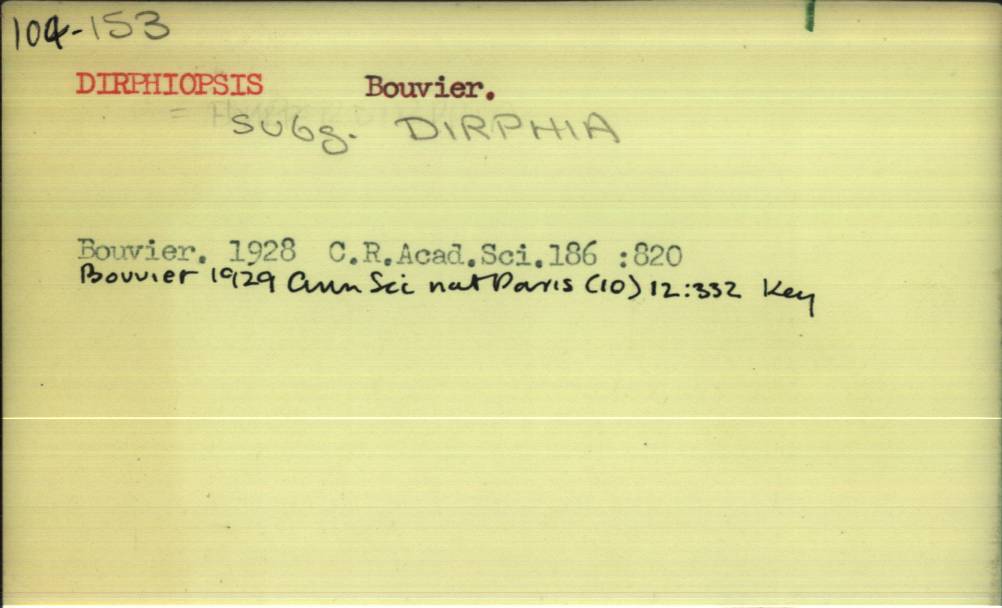 104-153
DIRPHIOPSIS Bouvier.
=
subg. DIRPHIA
Bouvier. 1928 C.R.Acad.Sci.186 :820
Bouvier 1929 Ann Sci nat Paris (10) 12:332 Key